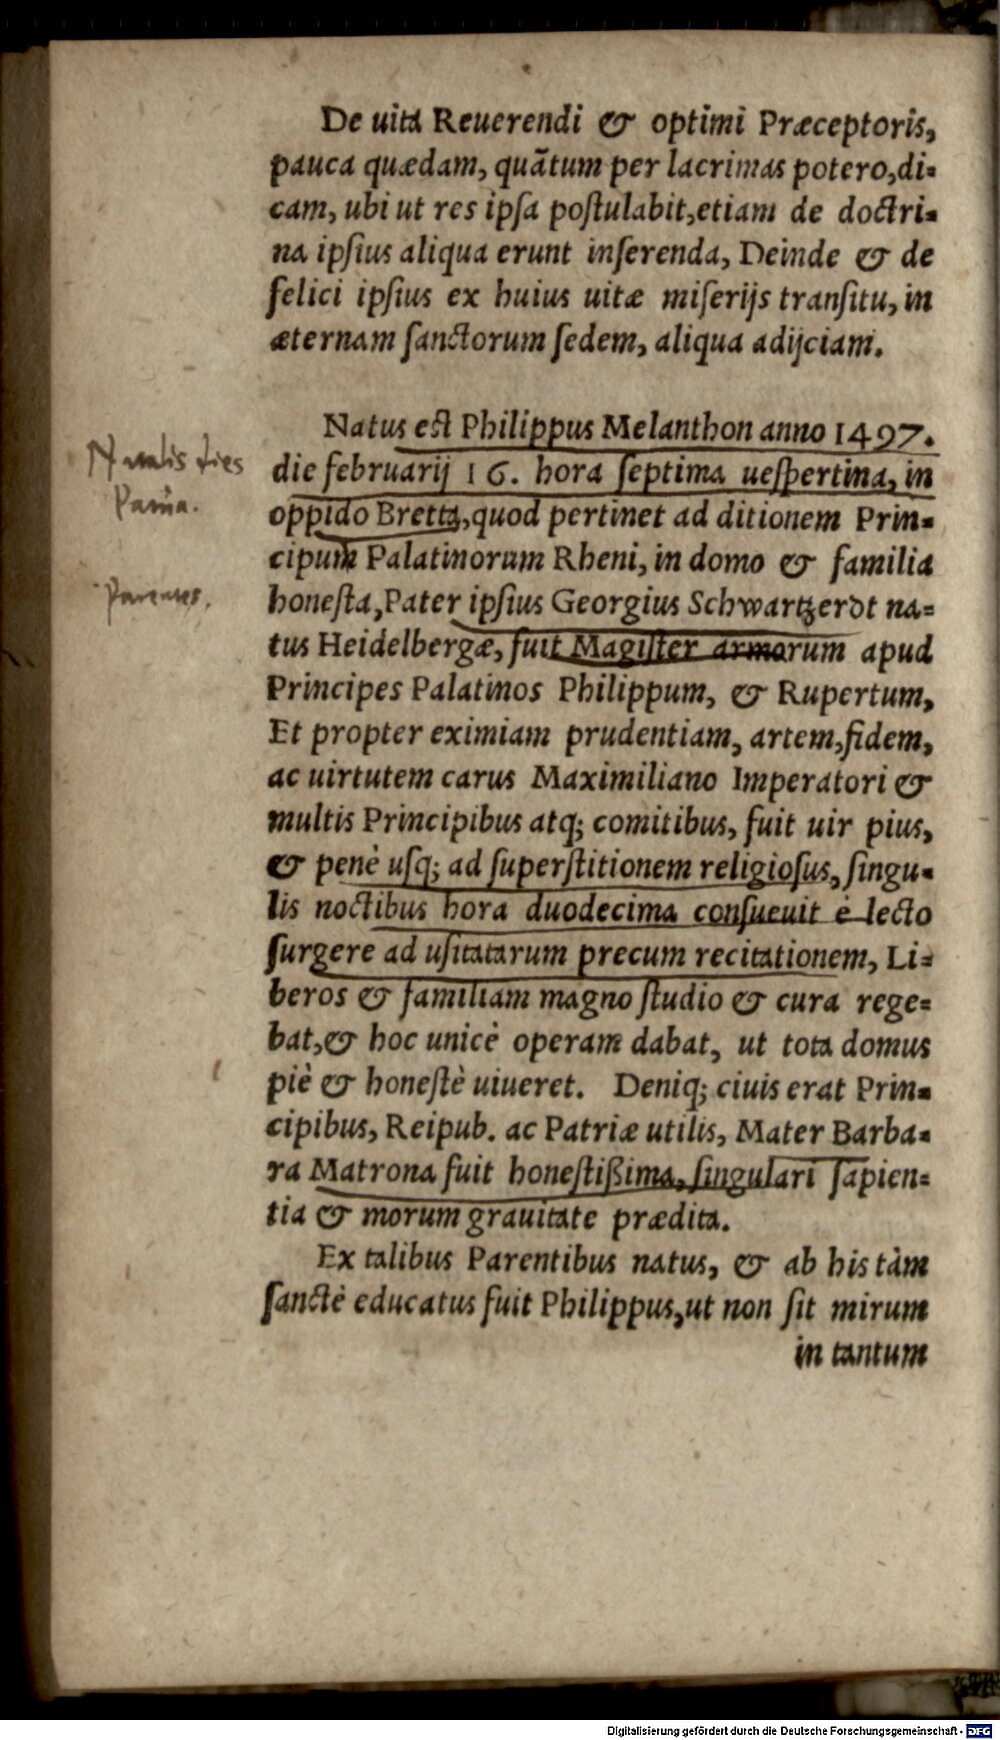 De uita Reuerendi & optimi Præceptoris,
pauca quædam, quãtum per lacrimas potero,di-
cam, ubi ut res ipſa poſtulabit,etiam de doctri-
na ipſius aliqua erunt inſerenda, Deinde & de
felici ipſius ex huius uitæ miſerijs tranſitu, in
æternam ſanctorum ſedem, aliqua adijciam.
Natus eſt Philippus Melanthon anno 1497.
Natalis dies
die februarij 16. hora ſeptima ueſpertina, in
Patria.
oppido Bretta,quod pertinet ad ditionem Prin-
cipum Palatinorum Rheni, in domo & familia
Parentes.
honeſta,Pater ipſius Georgius Schwartzerdt na-
tus Heidelbergæ, fuit Magiſter armorum apud
Principes Palatinos Philippum, & Rupertum,
Et propter eximiam prudentiam, artem,fidem,
ac uirtutem carus Maximiliano Imperatori &
multis Principibus atq; comitibus, fuit uir pius,
& penè uſq; ad ſuperſtitionem religioſus, ſingu-
lis noctibus hora duodecima conſueuit è lecto
ſurgere ad uſitatarum precum recitationem, Li-
beros & familiam magno ſtudio & cura rege-
bat,& hoc unicè operam dabat, ut tota domus
piè & honeſtè uiueret. Deniq; ciuis erat Prin-
cipibus, Reipub. ac Patriæ utilis, Mater Barba-
ra Matrona fuit honeſtißima, ſingulari ſapien-
tia & morum grauitate prædita.
Ex talibus Parentibus natus, & ab his tàm
ſanctè educatus fuit Philippus,ut non ſit mirum
in tantum
Digitalisierung gefördert durch die Deutsche Forschungsgemeinschaft - DFG